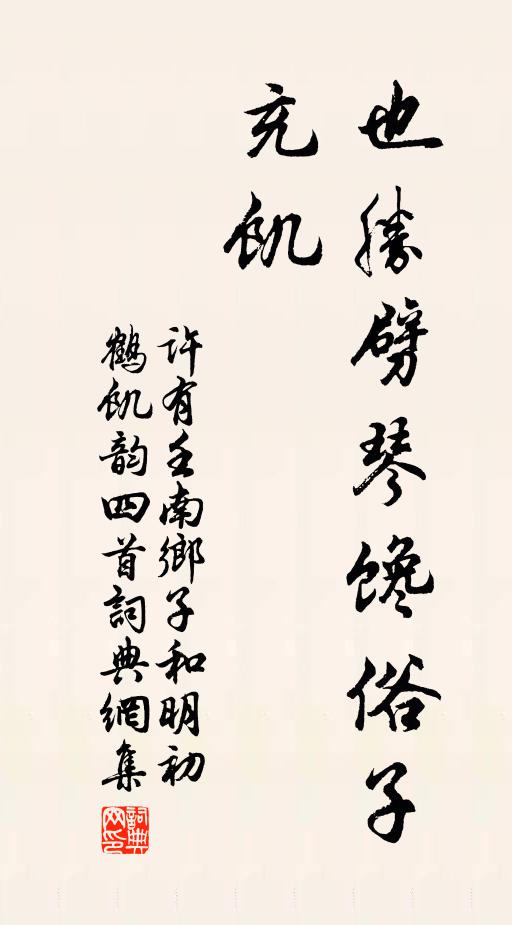 也勝劈琴馋俗子
充飢
许有壬南鄉子和明初
鶴飢韵四首詞典網集
詞典
网印